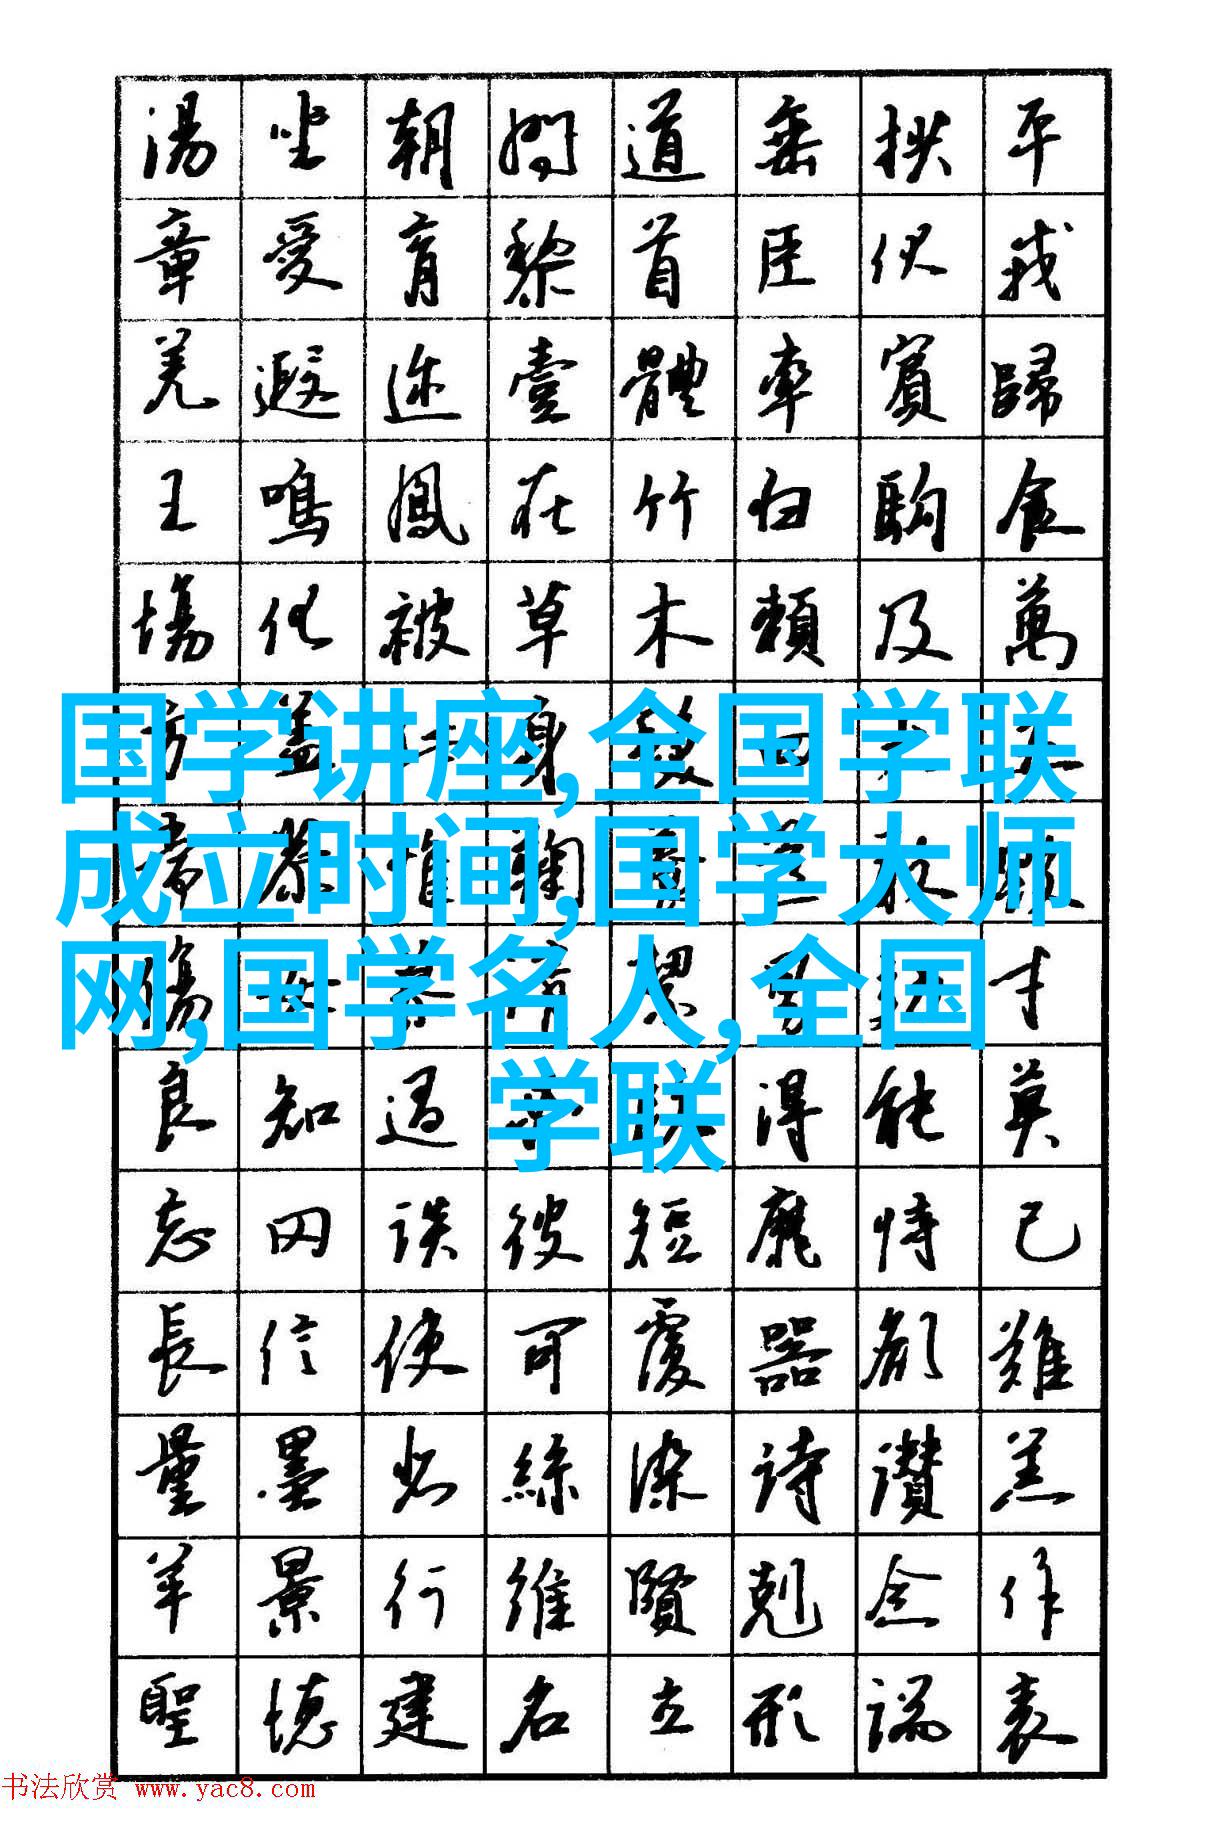 湯坐朝問道垂拱平
章愛育黎首臣伏戎
羌遐迩壹體率賓歸
王鳴鳳在竹白駒食
場化被草木賴及萬
国学讲座,全国学联
成立时间,国学大师
网,国学名人,全国
学联
方蓋身髮
恭惟鞠
傷才
良知過得能莫
忘罔談彼短靡恃己
長信使可覆器欲難
量墨悲絲染詩讚羔
羊景行維賢剋念作
聖德建名立形端表
书法欣赏 www.yac8.com